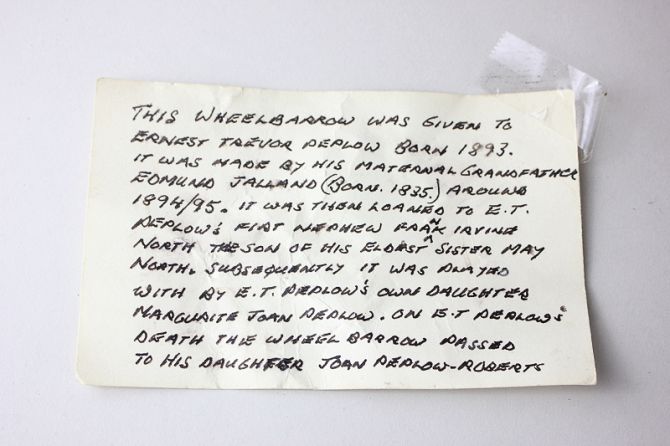 THIS WHEELBARROW WAS GIVEN TO
ERNEST TREVOR PEPLOW BORN 1893.
IT WAS MADE BY HIS MATERNAL GRANDFATHER
EDMUND JALLAND (BORN. 1835.) AROUND
1894/95. IT WAS THEN LOANED TO E.T.
PEPLOW'S FIRT NEPHEW FRANK IRVING
NORTH THE SON OF HIS ELDEST SISTER MAY
NORTH. SUBSEQUENTLY IT WAS PLAYED
WITH BY E.T. PEPLOW'S OWN DAUGHTER
MARGURITE JOAN PEPLOW. ON E.T PEPLOW'S
DEATH THE WHEEL BARROW PASSED
TO HIS DAUGHTER JOAN PEPLOW-ROBERTS